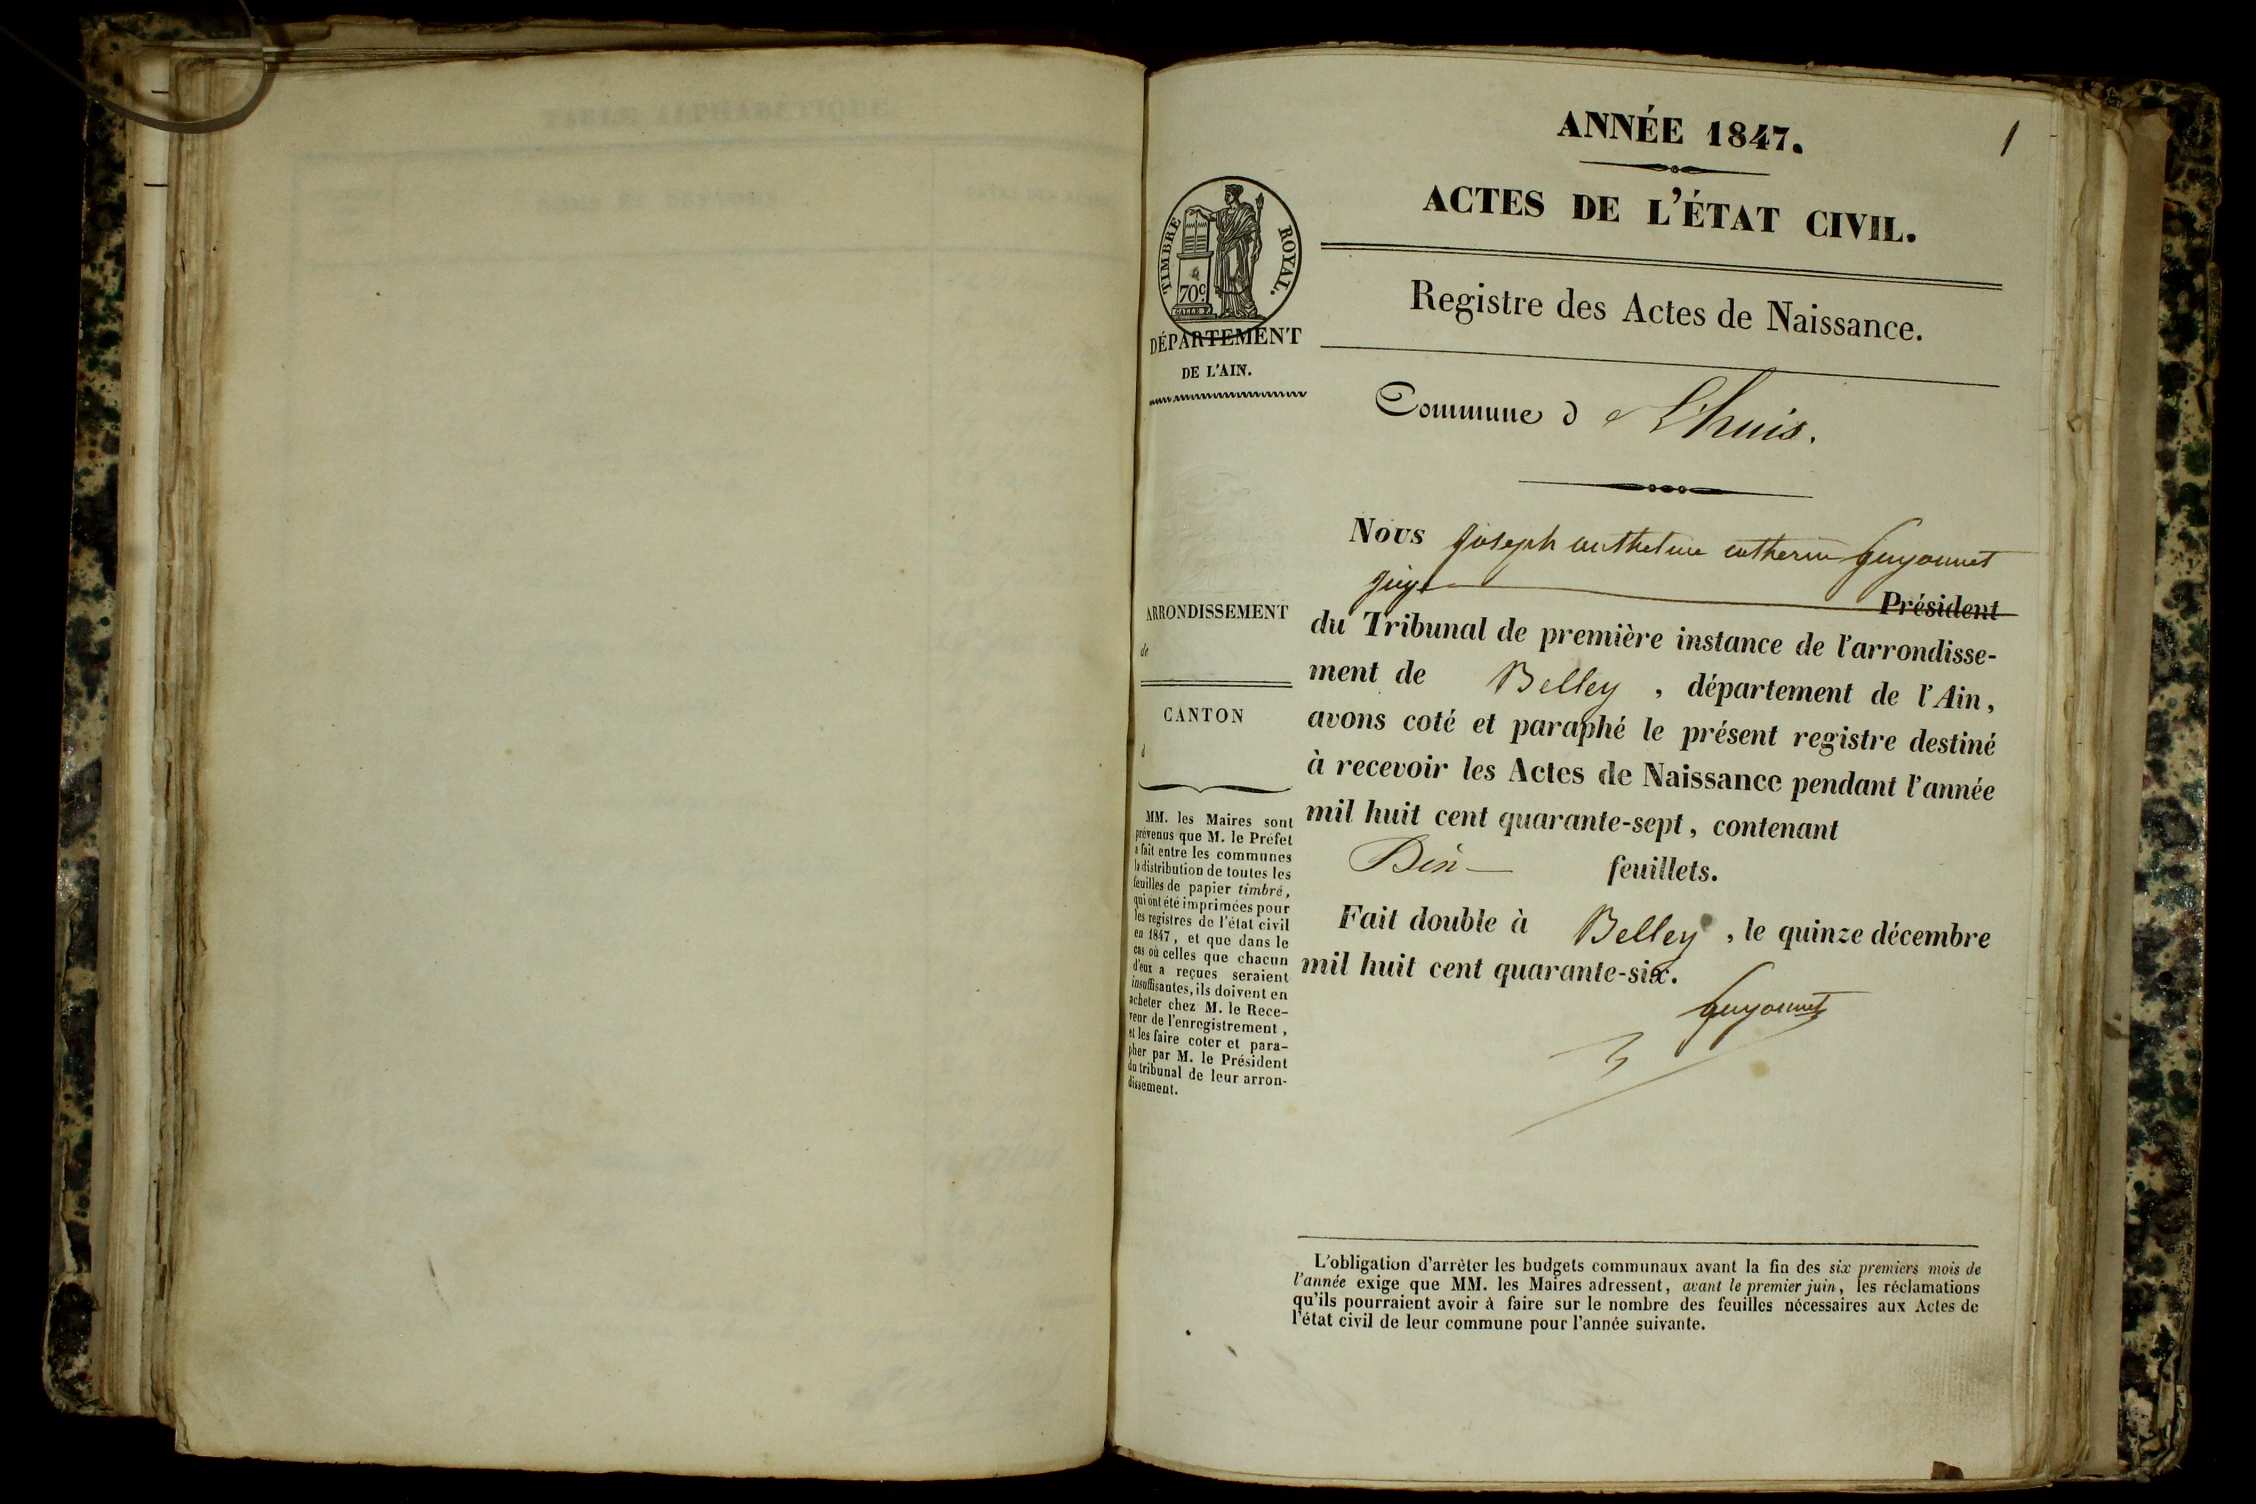 TABLE ALPHABÉTIQUE
ANNÉE 1847.
1
ACTES DE L'ÉTAT CIVIL.
TIMBRE ROYAL.
70c
DÉPARTEMENT
DE L'AIN.
Registre des Actes de Naissance.
Commune d e Lhuis.
Nous Joseph anthelme catherin Guyonnet
juge Président
du Tribunal de première instance de l'arrondisse-
ment de Belley , département de l'Ain,
avons coté et paraphé le présent registre destiné
à recevoir les Actes de Naissance pendant l'année
mil huit cent quarante-sept, contenant
Dix feuillets.
Fait double à Belley , le quinze décembre
mil huit cent quarante-six.
Guyonnet
ARRONDISSEMENT
de
CANTON
d
MM. les Maires sont
prévenus que M. le Préfet
a fait entre les communes
la distribution de toutes les
feuilles de papier timbré,
qui ont été imprimées pour
les registres de l'état civil
en 1847, et que dans le
cas où celles que chacun
d'eux a reçues seraient
insuffisantes, ils doivent en
acheter chez M. le Rece-
veur de l'enregistrement,
et les faire coter et para-
pher par M. le Président
du tribunal de leur arron-
dissement.
L'obligation d'arrêter les budgets communaux avant la fin des six premiers mois de
l'année exige que MM. les Maires adressent, avant le premier juin, les réclamations
qu'ils pourraient avoir à faire sur le nombre des feuilles nécessaires aux Actes de
l'état civil de leur commune pour l'année suivante.